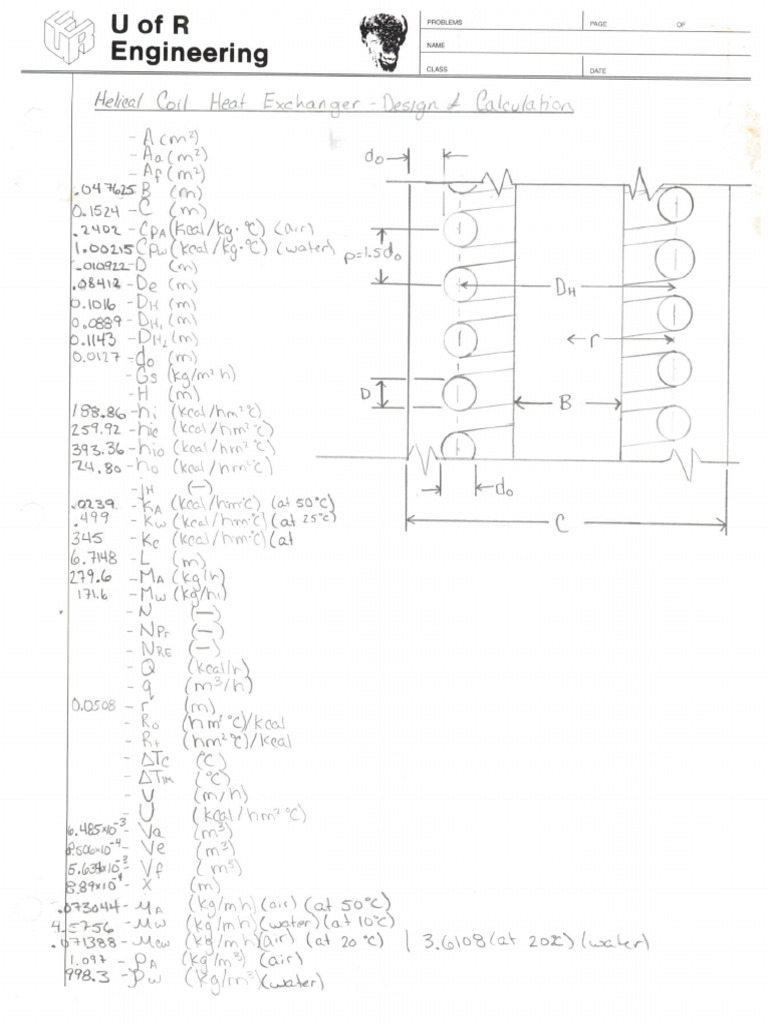 U of R
Engineering
PROBLEMS
PAGE OF
NAME
CLASS
DATE
Helical Coil Heat Exchanger - Design & Calculation
- A (m²)
- Aa (m²)
- Af (m²)
.047625 B (m)
0.1524 - C (m)
.2402 - CpA (kcal/kg·°C) (air)
1.00215 Cpw (kcal/kg·°C) (water)
.010922 - D (m)
.08412 - De (m)
0.1016 - DH (m)
0.0889 - DH1 (m)
0.1143 - DH2 (m)
0.0127 - do (m)
- Gs (kg/m²h)
- H (m)
188.86 - hi (kcal/hm²°C)
259.92 - hic (kcal/hm²°C)
393.36 - hio (kcal/hm²°C)
24.80 - ho (kcal/hm²°C)
- JH (—)
.0239 - KA (kcal/hm°C) (at 50°C)
.499 - Kw (kcal/hm°C) (at 25°C)
345 - Kc (kcal/hm°C) (at
6.7148 - L (m)
279.6 - MA (kg/h)
171.6 - Mw (kg/h)
- N (—)
- NPr (—)
- NRE (—)
- Q (kcal/h)
- q (m³/h)
0.0508 - r (m)
- Ro (hm²°C)/kcal
- Rt (hm²°C)/kcal
- ΔTc (°C)
- ΔTlm (°C)
- U (m/h)
- U (kcal/hm²°C)
6.485x10⁻³ - Va (m³)
8.506x10⁻⁴ - Ve (m³)
5.634x10⁻³ - Vf (m³)
8.89x10⁻⁴ - X (m)
.073044 - MA (kg/mh) (air) (at 50°C)
4.5756 - Mw (kg/mh) (water) (at 10°C)
.071388 - Mcw (kg/mh) (air) (at 20°C) | 3.6108 (at 20°C) (water)
1.097 - ρA (kg/m³) (air)
998.3 - ρw (kg/m³) (water)
do
p=1.5do
DH
r
D
B
do
C